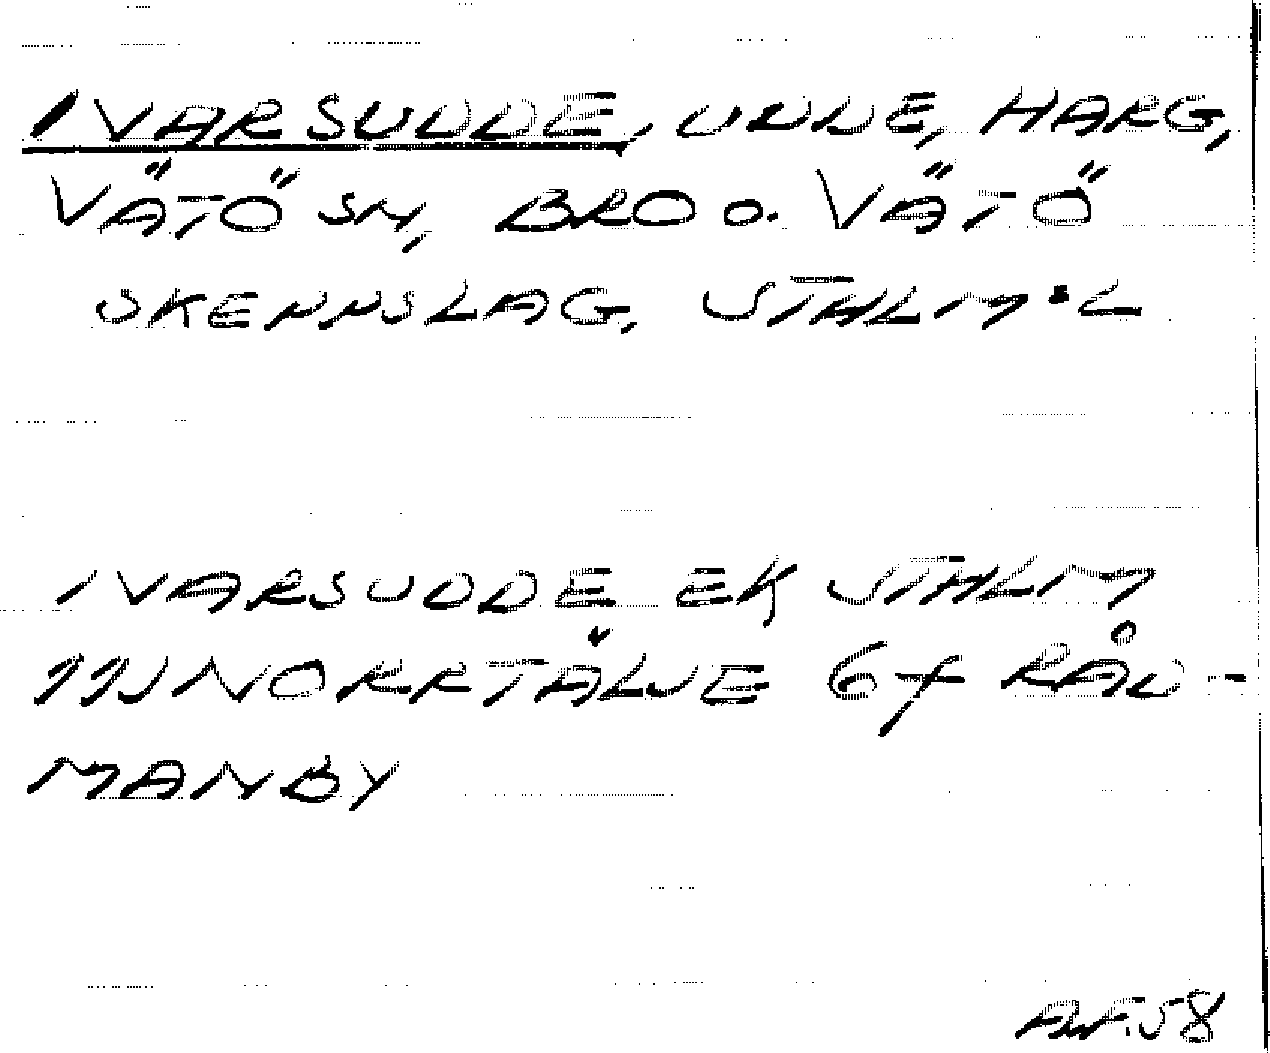 IVARSUDDE, UDDE, HARG,
VÄTÖ SN, BRO O. VÄTÖ
SKEPPSLAG, STHLM·L
IVARSUDDE EK STHLM
11J NORRTÄLJE 6f RÅD-
MANBY